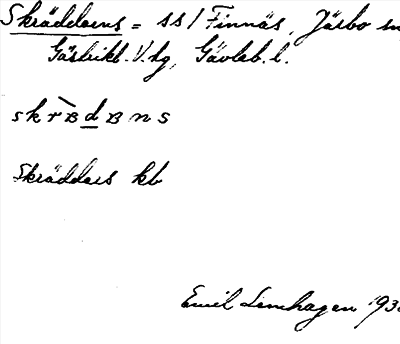 Skräddarns = ss/ Finnäs, Järbo sn
Gästrikl. V. hg, Gävleb. l.
skràʙdʙns
Skräddars kb
Emil Linnhagen 193